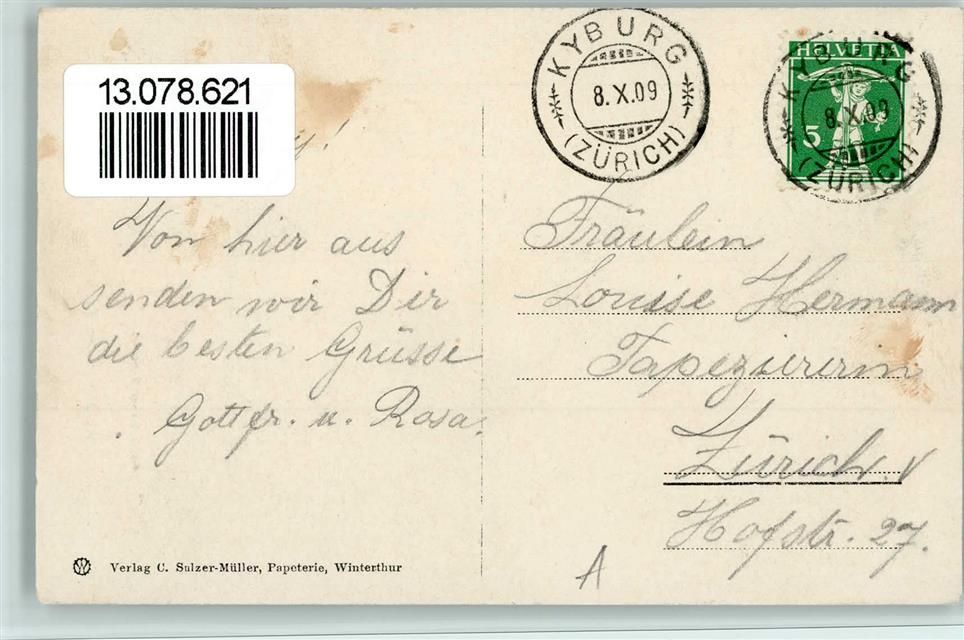 13.078.621
KYBURG
8.X.09
(ZÜRICH)
HELVETIA
5
KYBURG
8.X.09
(ZÜRICH)
Von hier aus
senden wir Dir
die besten Grüsse
Gottfr. u. Rosa.
Fräulein
Louise Hermann
Tapeziererin
Zürich. V
Hofstr. 27.
A
Verlag C. Sulzer-Müller, Papeterie, Winterthur